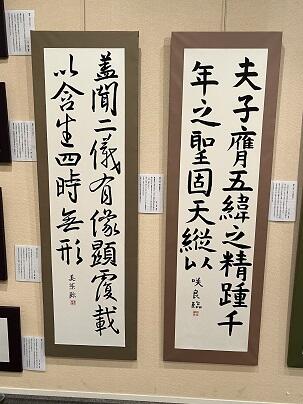 夫子膺五緯之精踵千
年之聖固天縱以
咲良臨
蓋聞二儀有像顯覆載
以含生四時無形